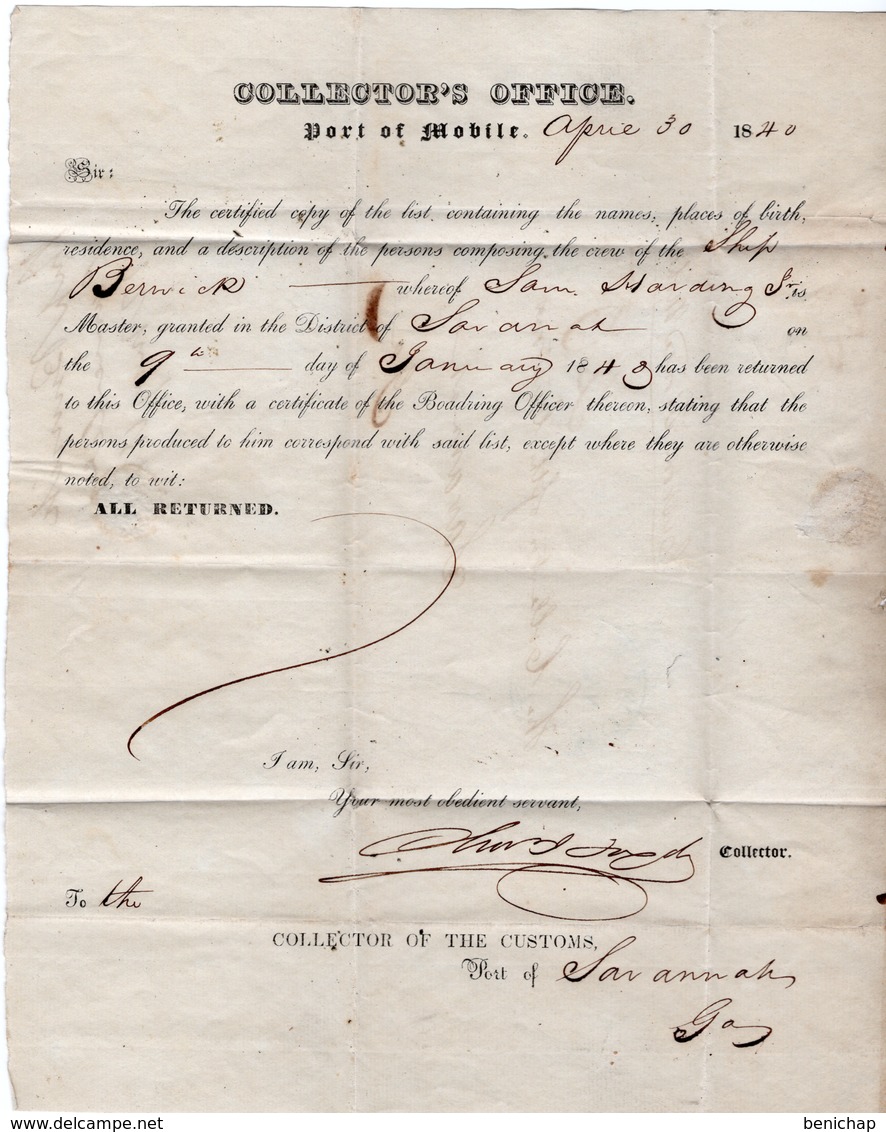 COLLECTOR'S OFFICE.
Port of Mobile. April 30 1840
Sir:
The certified copy of the list, containing the names, places of birth,
residence, and a description of the persons composing the crew of the Ship
Berwick whereof Sam. Harding Jr. is
Master, granted in the District of Savanah on
the 9th day of January 1840 has been returned
to this Office, with a certificate of the Boadring Officer thereon, stating that the
persons produced to him correspond with said list, except where they are otherwise
noted, to wit:
ALL RETURNED.
I am, Sir,
Your most obedient servant,
Collector.
To the
COLLECTOR OF THE CUSTOMS,
Port of Savannah
Ga
www.delcampe.net
benichap